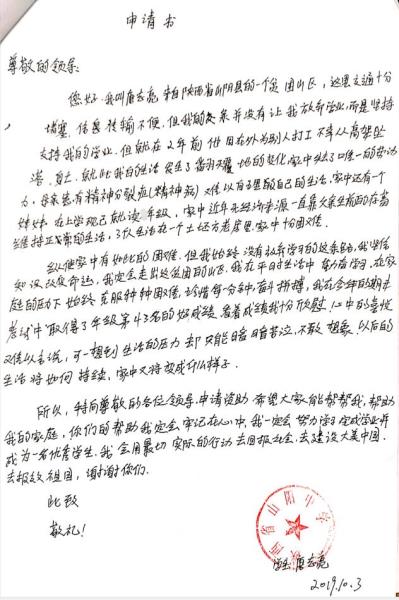 申请书
尊敬的领导:
您好,我叫唐云亮,来自陕西省山阳县的一个贫困山区,这里交通十分
堵塞,信息传输不便,但我的父亲并没有让我放弃学业,而是坚持
支持我的学业,但就在2年前他因在外为别人打工不幸从高架坠
落,身亡,就此我的生活发生了翻天覆地的变化,家中失去了唯一的劳动
力,母亲患有精神分裂症(精神病)难以自己料理自己的生活,家中还有个
妹妹,在上学现已就读 年级,家中近年无经济来源一直靠父亲生前的存款
维持正常的生活,3个人生活在一个土坯房老屋里,家中十分困难。
纵使家中有如此的困难,但我始终没有放弃学习的这条路,我坚信
知识改变命运,我定会走出这贫困的山区,我在平日的生活中努力学习,在家
庭的压力下始终克服种种困难,珍惜每分钟,奋力拼搏,我在全年的期末
考试中取得了年级第43名的好成绩,看着成绩我十分欣慰,心中的喜悦
难以言说,可一想到生活的压力却只能暗暗苦泣,不敢想象以后的
生活将如何持续,家中又将变成什么样子。
所以,特向尊敬的各位领导申请资助,希望大家能帮帮我,帮助
我的家庭,你们的帮助我定会牢记在心中,我一定会努力学习完成学业并
成为一名优秀学生,我会用最切实际的行动去回报社会,去建设大美中国,
去报效祖国,谢谢你们。
此致
敬礼!
陕西省山阳中学
学生:唐云亮
2019.10.3